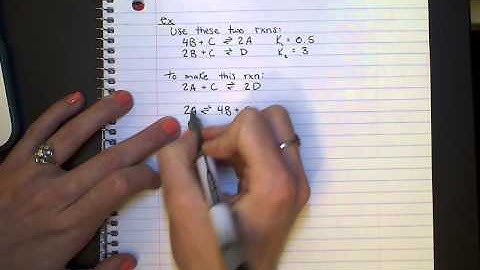 ex
Use these two rxns:
4B + C ⇌ 2A K₁ = 0.5
2B + C ⇌ D K₂ = 3
to make this rxn:
2A + C ⇌ 2D
2A ⇌ 4B +